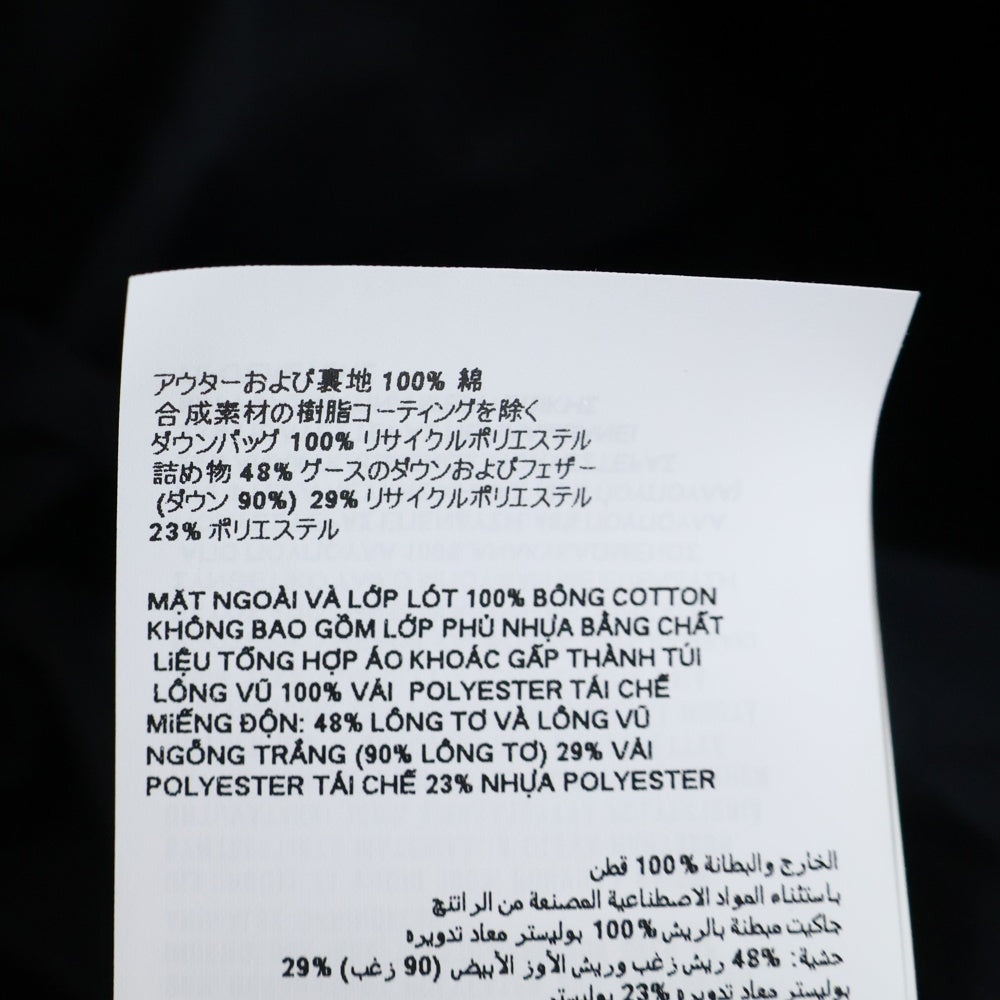 アウターおよび裏地 100% 綿
合成素材の樹脂コーティングを除く
ダウンバッグ 100% リサイクルポリエステル
詰め物 48% グースのダウンおよびフェザー
(ダウン 90%) 29% リサイクルポリエステル
23% ポリエステル
MẶT NGOÀI VÀ LỚP LÓT 100% BÔNG COTTON
KHÔNG BAO GỒM LỚP PHỦ NHỰA BẰNG CHẤT
LIỆU TỔNG HỢP ÁO KHOÁC GẤP THÀNH TÚI
LÔNG VŨ 100% VẢI POLYESTER TÁI CHẾ
MIẾNG ĐỘN: 48% LÔNG TƠ VÀ LÔNG VŨ
NGỖNG TRẮNG (90% LÔNG TƠ) 29% VẢI
POLYESTER TÁI CHẾ 23% NHỰA POLYESTER
الخارج والبطانة %100 قطن
باستثناء المواد الاصطناعية المصنعة من الراتنج
جاكيت مبطنة بالريش %100 بوليستر معاد تدويره
حشية: %48 ريش زغب وريش الأوز الأبيض (90 زغب) %29
بوليستر معاد تدويره %23 بوليستر